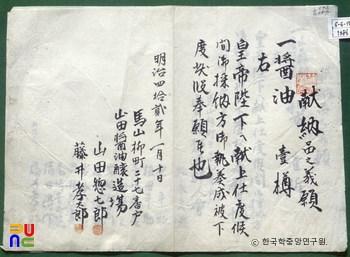 献納品之義願
一 醤油 壹樽
右
皇帝陛下へ献上仕度候
間御採納方御執奏成被下
度此段奉願候也
明治四拾貳年一月十日
馬山柳町二十七番戸
山田醤油醸造場
山田惣七郎
藤井孝太郎
ⓒ한국학중앙연구원